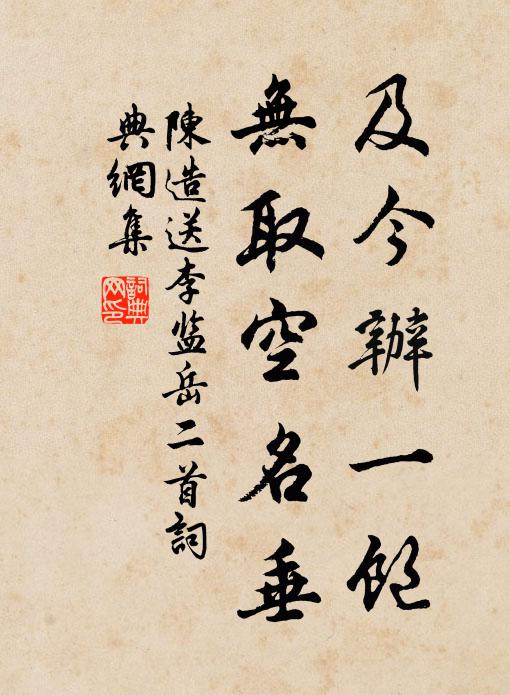 及今辦一飽
無取空名垂
陳造送李监岳二首詞
典網集
詞典
网印